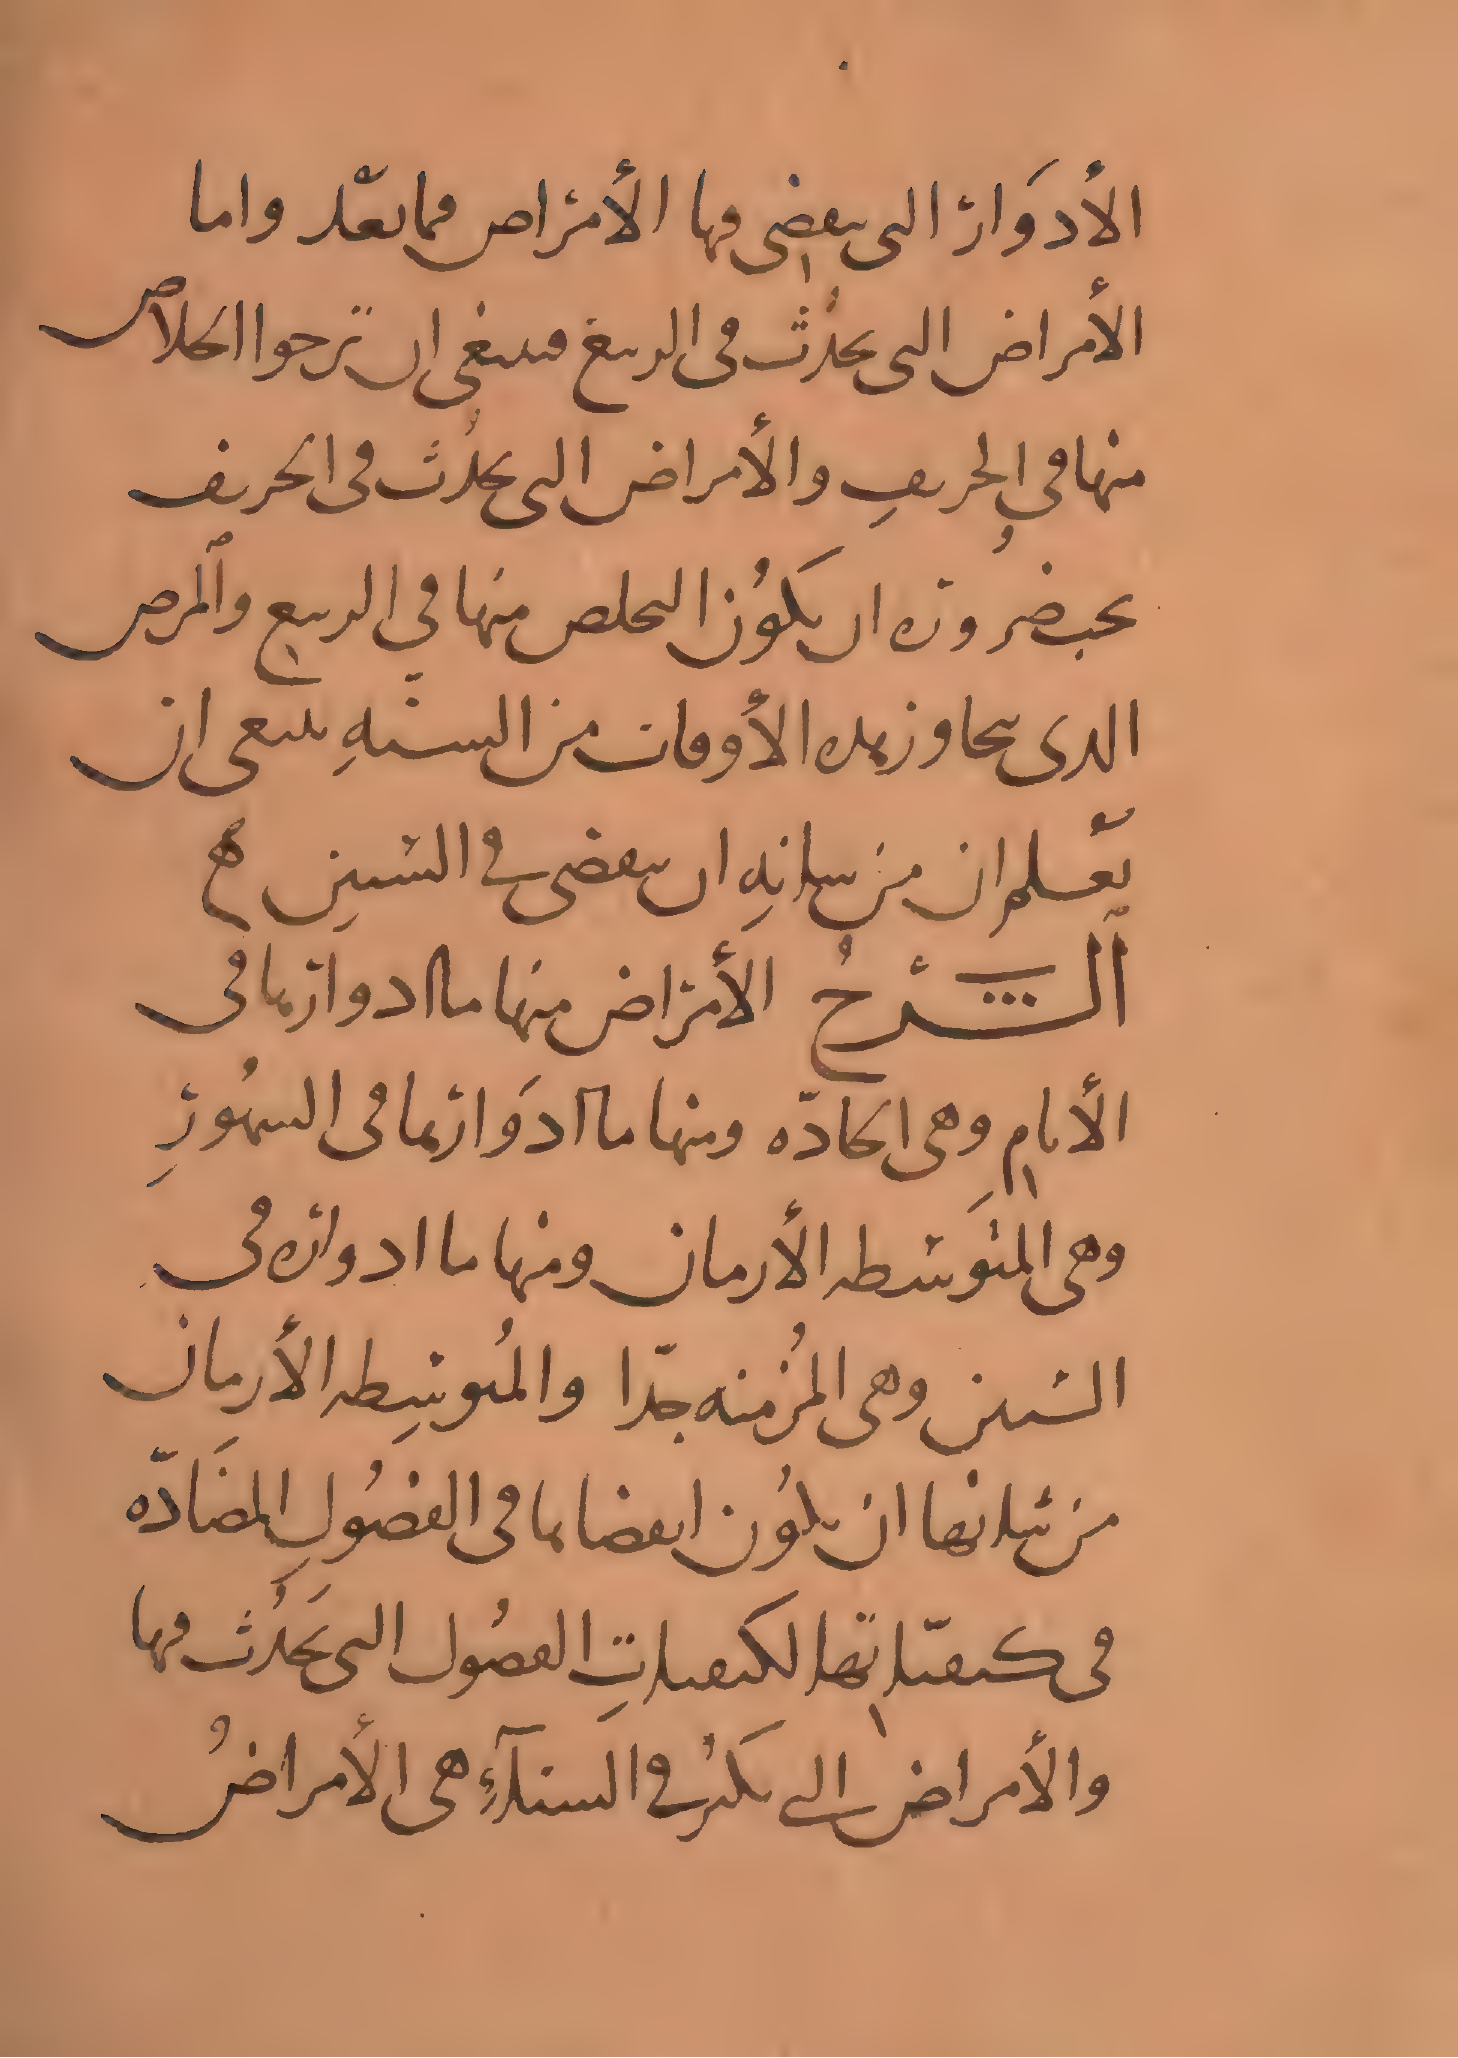 الأدوار التى ينقضى فيها الأمراض فيما بعد واما
الأمراض التى يحدُث فى الربيع فينبغى ان ترجوا الخلاص
منها فى الخريفِ والأمراض التى يحدُث فى الخريف
يجب ضرُورة ان يكوُن التخلص منها فى الربيع وٱلمرض
الذى يتجاوز هذه الأوقات من السنّهِ ينبغى ان
يعْلم ان من شانهِ ان ينقضى فى السنين
ٱلشرْحُ الأمراض منها ما ادوارها فى
الأيام وهى الحادّه ومنها ما ادوَارها فى الشهُورِ
وهى المتوَسطه الأزمان ومنها ما ادواره فى
السنين وهى المُزمنه جدّا والمُتوسِطه الأزمان
من شانها ان يكوُن انقضاها فى الفصُولِ المضَادّه
فى كيفيّاتها لكيفياتِ الفصُول التى يَحدُث فيها
والأمراض التى يكثرُ فى الشتآءِ هى الأمراضُ